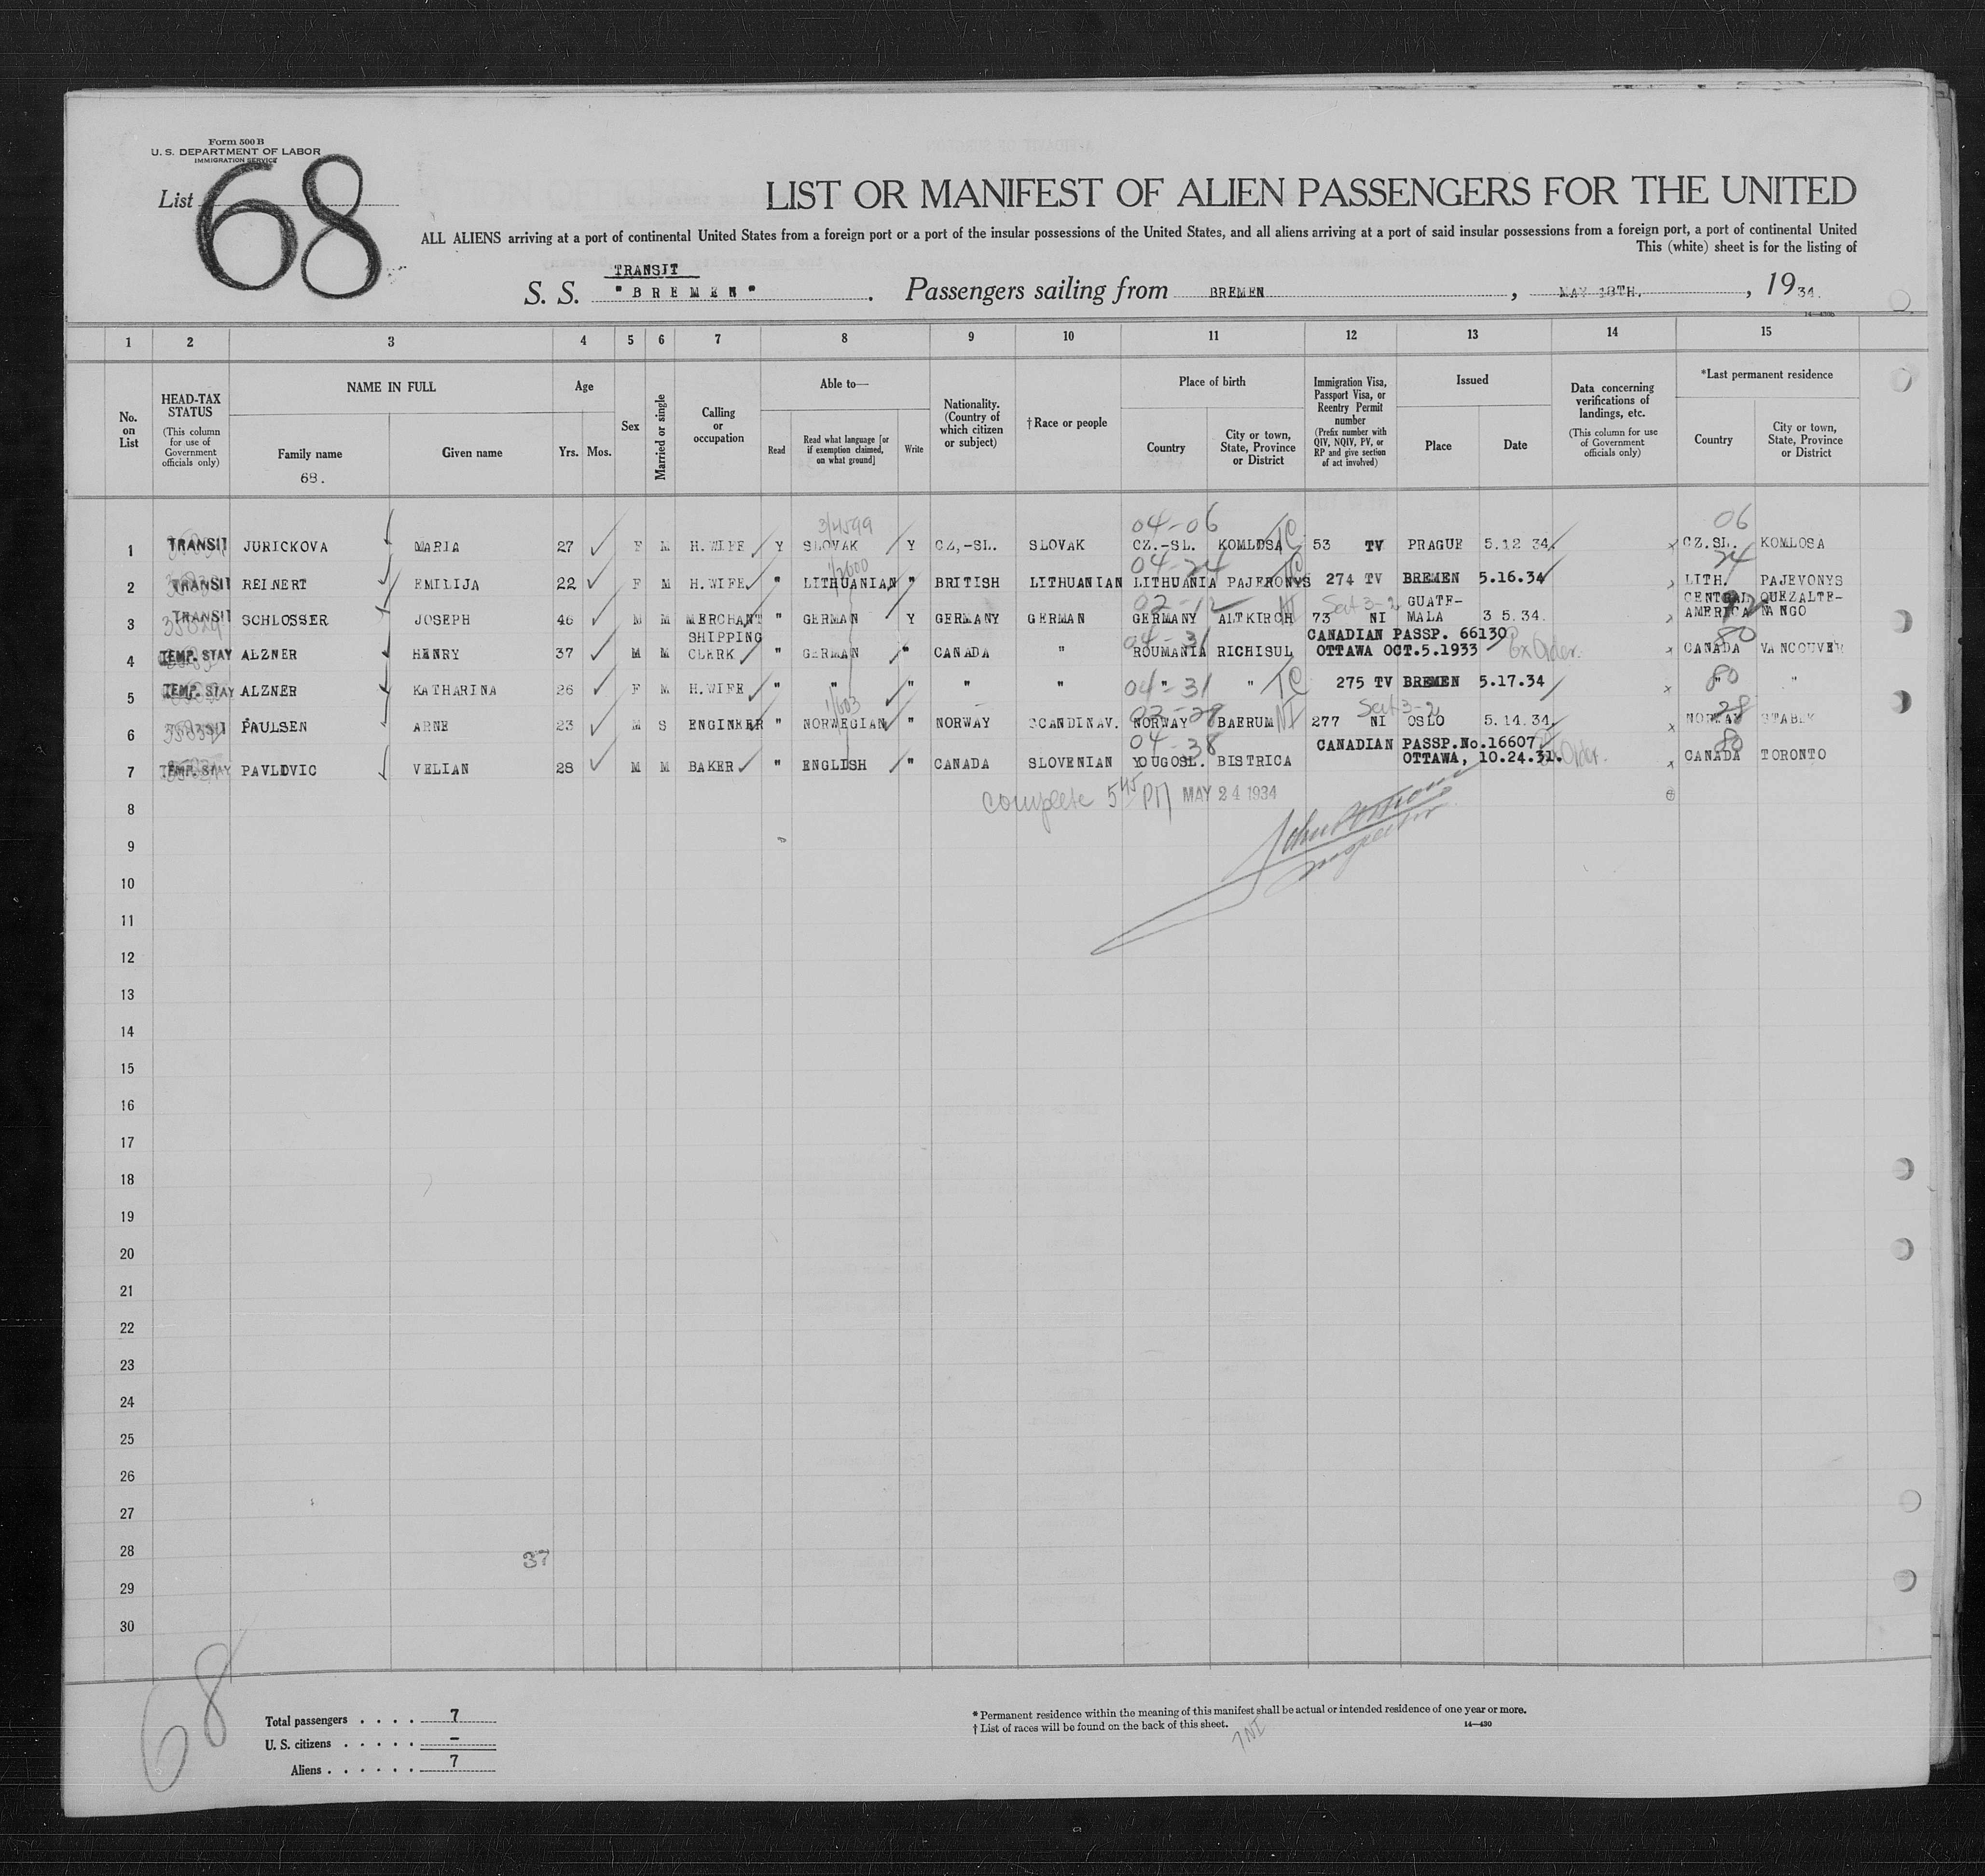 Form 500 B
U. S. DEPARTMENT OF LABOR
IMMIGRATION SERVICE
List 68
LIST OR MANIFEST OF ALIEN PASSENGERS FOR THE UNITED
ALL ALIENS arriving at a port of continental United States from a foreign port or a port of the insular possessions of the United States, and all aliens arriving at a port of said insular possessions from a foreign port, a port of continental United
This (white) sheet is for the listing of
TRANSIT
S. S. "BREMEN". Passengers sailing from BREMEN, MAY 18TH., 1934.
1 2 3 4 5 6 7 8 9 10 11 12 13 14 15
No. on List
HEAD-TAX STATUS (This column for use of Government officials only)
NAME IN FULL
Family name
68.
Given name
Age
Yrs. Mos.
Sex
Married or single
Calling or occupation
Able to—
Read
Read what language [or if exemption claimed, on what ground]
Write
Nationality. (Country of which citizen or subject)
† Race or people
Place of birth
Country
City or town, State, Province or District
Immigration Visa, Passport Visa, or Reentry Permit number (Prefix number with QIV, NQIV, PV, or RP and give section of act involved)
Issued
Place
Date
Data concerning verifications of landings, etc. (This column for use of Government officials only)
*Last permanent residence
Country
City or town, State, Province or District
04-06 TC 06
1 TRANSIT JURICKOVA MARIA 27 F M H.WIFE Y SLOVAK Y CZ,-SL. SLOVAK CZ.-SL. KOMLOSA 53 TV PRAGUE 5.12 34 CZ.SL. KOMLOSA
04-24 TC 24
2 TRANSIT REINERT EMILIJA 22 F M H.WIFE " LITHUANIAN " BRITISH LITHUANIAN LITHUANIA PAJERONYS 274 TV BREMEN 5.16.34 LITH. PAJEVONYS
02-12 NI
3 TRANSIT SCHLOSSER JOSEPH 46 M M MERCHANT " GERMAN Y GERMANY GERMAN GERMANY ALTKIRCH 73 NI GUATE-MALA 3 5.34. CENTRAL AMERICA QUEZALTE-NANGO
04-31 80
4 TEMP. STAY ALZNER HENRY 37 M M SHIPPING CLERK " GERMAN " CANADA " ROUMANIA RICHISUL CANADIAN PASSP. 66130 OTTAWA OCT.5.1933 Ex Order. CANADA VANCOUVER
04-31 TC 80
5 TEMP. STAY ALZNER KATHARINA 26 F M H.WIFE " " " " " " " 275 TV BREMEN 5.17.34 " "
28
6 PAULSEN ARNE 23 M S ENGINEER " NORWEGIAN " NORWAY SCANDINAV. NORWAY BAERUM NI 277 NI OSLO 5.14.34. NORWAY STABEK
04-38 80
7 TEMP. STAY PAVLOVIC VELIAN 28 M M BAKER " ENGLISH " CANADA SLOVENIAN YOUGOSL. BISTRICA CANADIAN PASSP.No.16607 OTTAWA, 10.24.31. CANADA TORONTO
complete 5 45 PM MAY 24 1934
8
Inspector
9
10
11
12
13
14
15
16
17
18
19
20
21
22
23
24
25
26
27
28
37
29
30
68
Total passengers . . . . 7
U. S. citizens . . . . . –
Aliens . . . . . . 7
* Permanent residence within the meaning of this manifest shall be actual or intended residence of one year or more.
† List of races will be found on the back of this sheet.
14—430